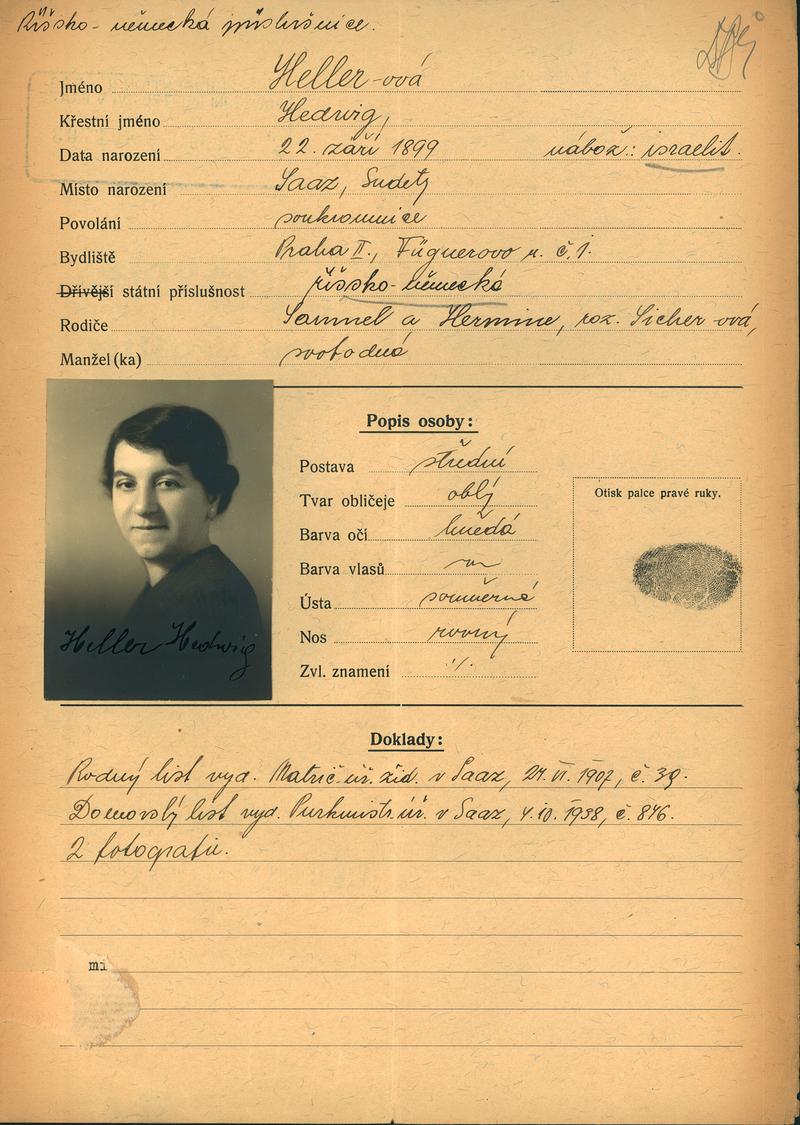 Říšsko-německá příslušnice.
Jméno Heller-ová
Křestní jméno Hedwig,
Data narození 22. září 1899 nábož.: israelit.
Místo narození Saaz, Sudety
Povolání soukromnice
Bydliště Praha II., Fügnerovo n. č. 1.
Dřívější státní příslušnost říšsko-německá
Rodiče Samuel a Hermine, roz. Sicher-ová,
Manžel(ka) svobodná
Popis osoby:
Postava střední
Tvar obličeje oblý
Barva očí hnědá
Barva vlasů
Ústa souměrné
Nos rovný
Zvl. znamení ·/.
Otisk palce pravé ruky.
Heller Hedwig
Doklady:
Rodný list vyd. Matrič. úř. žid. v Saaz, 24. VI. 1907, č. 39.
Domovský list vyd. Purkmistr. úř. v Saaz, 4. 10. 1938, č. 846.
2 fotografie.
mi